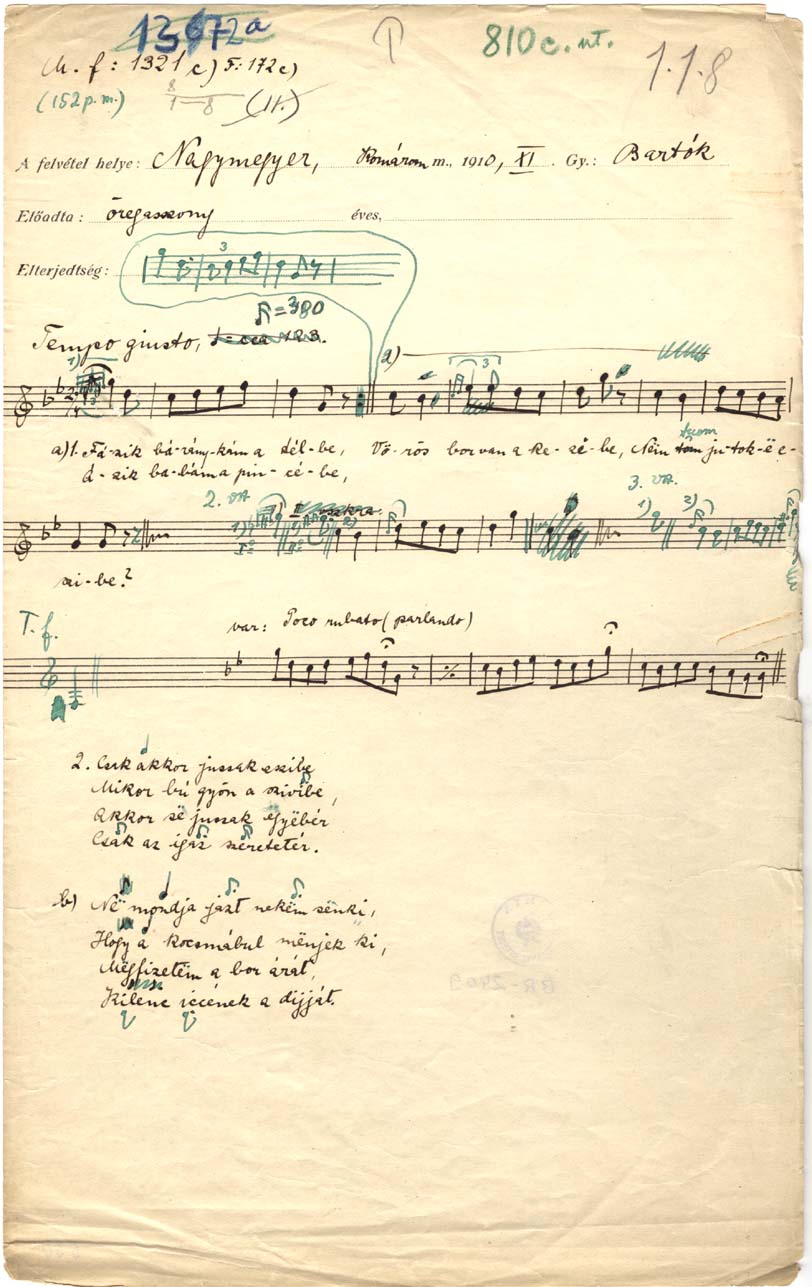 13672a
810c. nt.
M. f: 1321 c) F: 172 c)
1.1.8
(152 p.m.)
8
1 — 8 (II.)
A felvétel helye: Nagymegyer, Komárom m., 1910, XI. Gy.: Bartók
Előadta: öregasszony éves,
Elterjedtség:
3
=380
Tempo giusto,
1) a) 3
a) 1. Fá-zik bá-rány-kám a dél-be, Vö-rös bor van a ke-zé-be, Nem tuom ju-tok-ë e-
d-zik ba-bám a pin-cé-be,
2. va. 3. va.
1) 2) 1) 2)
szi-be?
T. f.
var: Poco rubato (parlando)
2. Csak akkor jussak eszibe
Mikor bú gyön a szivibe,
Akkor së jussak ëgyëbér
Csak az igaz szeretetér.
b) Në mondja jazt nekëm sënki,
Hogy a kocsmábul mënjek ki,
Mëgfizetëm a bor árát,
Kilenc iccének a dijját.
BR-2409